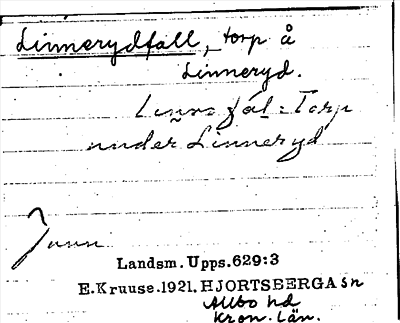 Linnerydfall, torp å
Linneryd.
fàl: Torp
under Linneryd
Landsm. Upps. 629:3
E. Kruuse. 1921. HJORTSBERGA sn
Allbo hd
Kron. län.